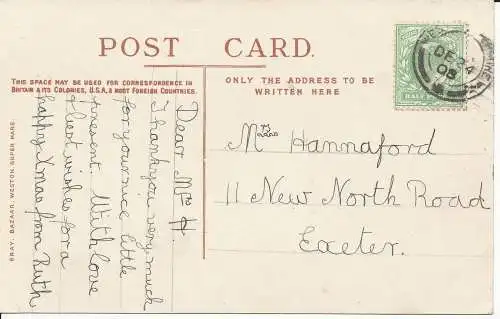 POST CARD.
THIS SPACE MAY BE USED FOR CORRESPONDENCE IN
BRITAIN & ITS COLONIES, U.S.A, & MOST FOREIGN COUNTRIES.
ONLY THE ADDRESS TO BE
WRITTEN HERE
Dear Mrs H.
Thank you very much
for your nice little
present. With love
& best wishes for a
happy Xmas from Ruth
Mrs Hannaford
11 New North Road
Exeter.
BRAY, BAZAAR, WESTON SUPER MARE.
DE 24
HALF